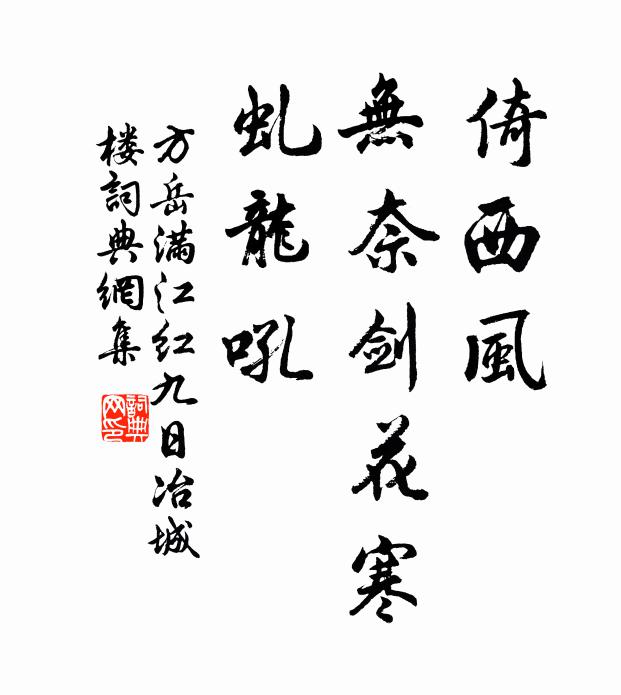 倚西風
無奈劍花寒
虬龍吼
方岳滿江红九日冶城
楼詞典網集
詞典网印